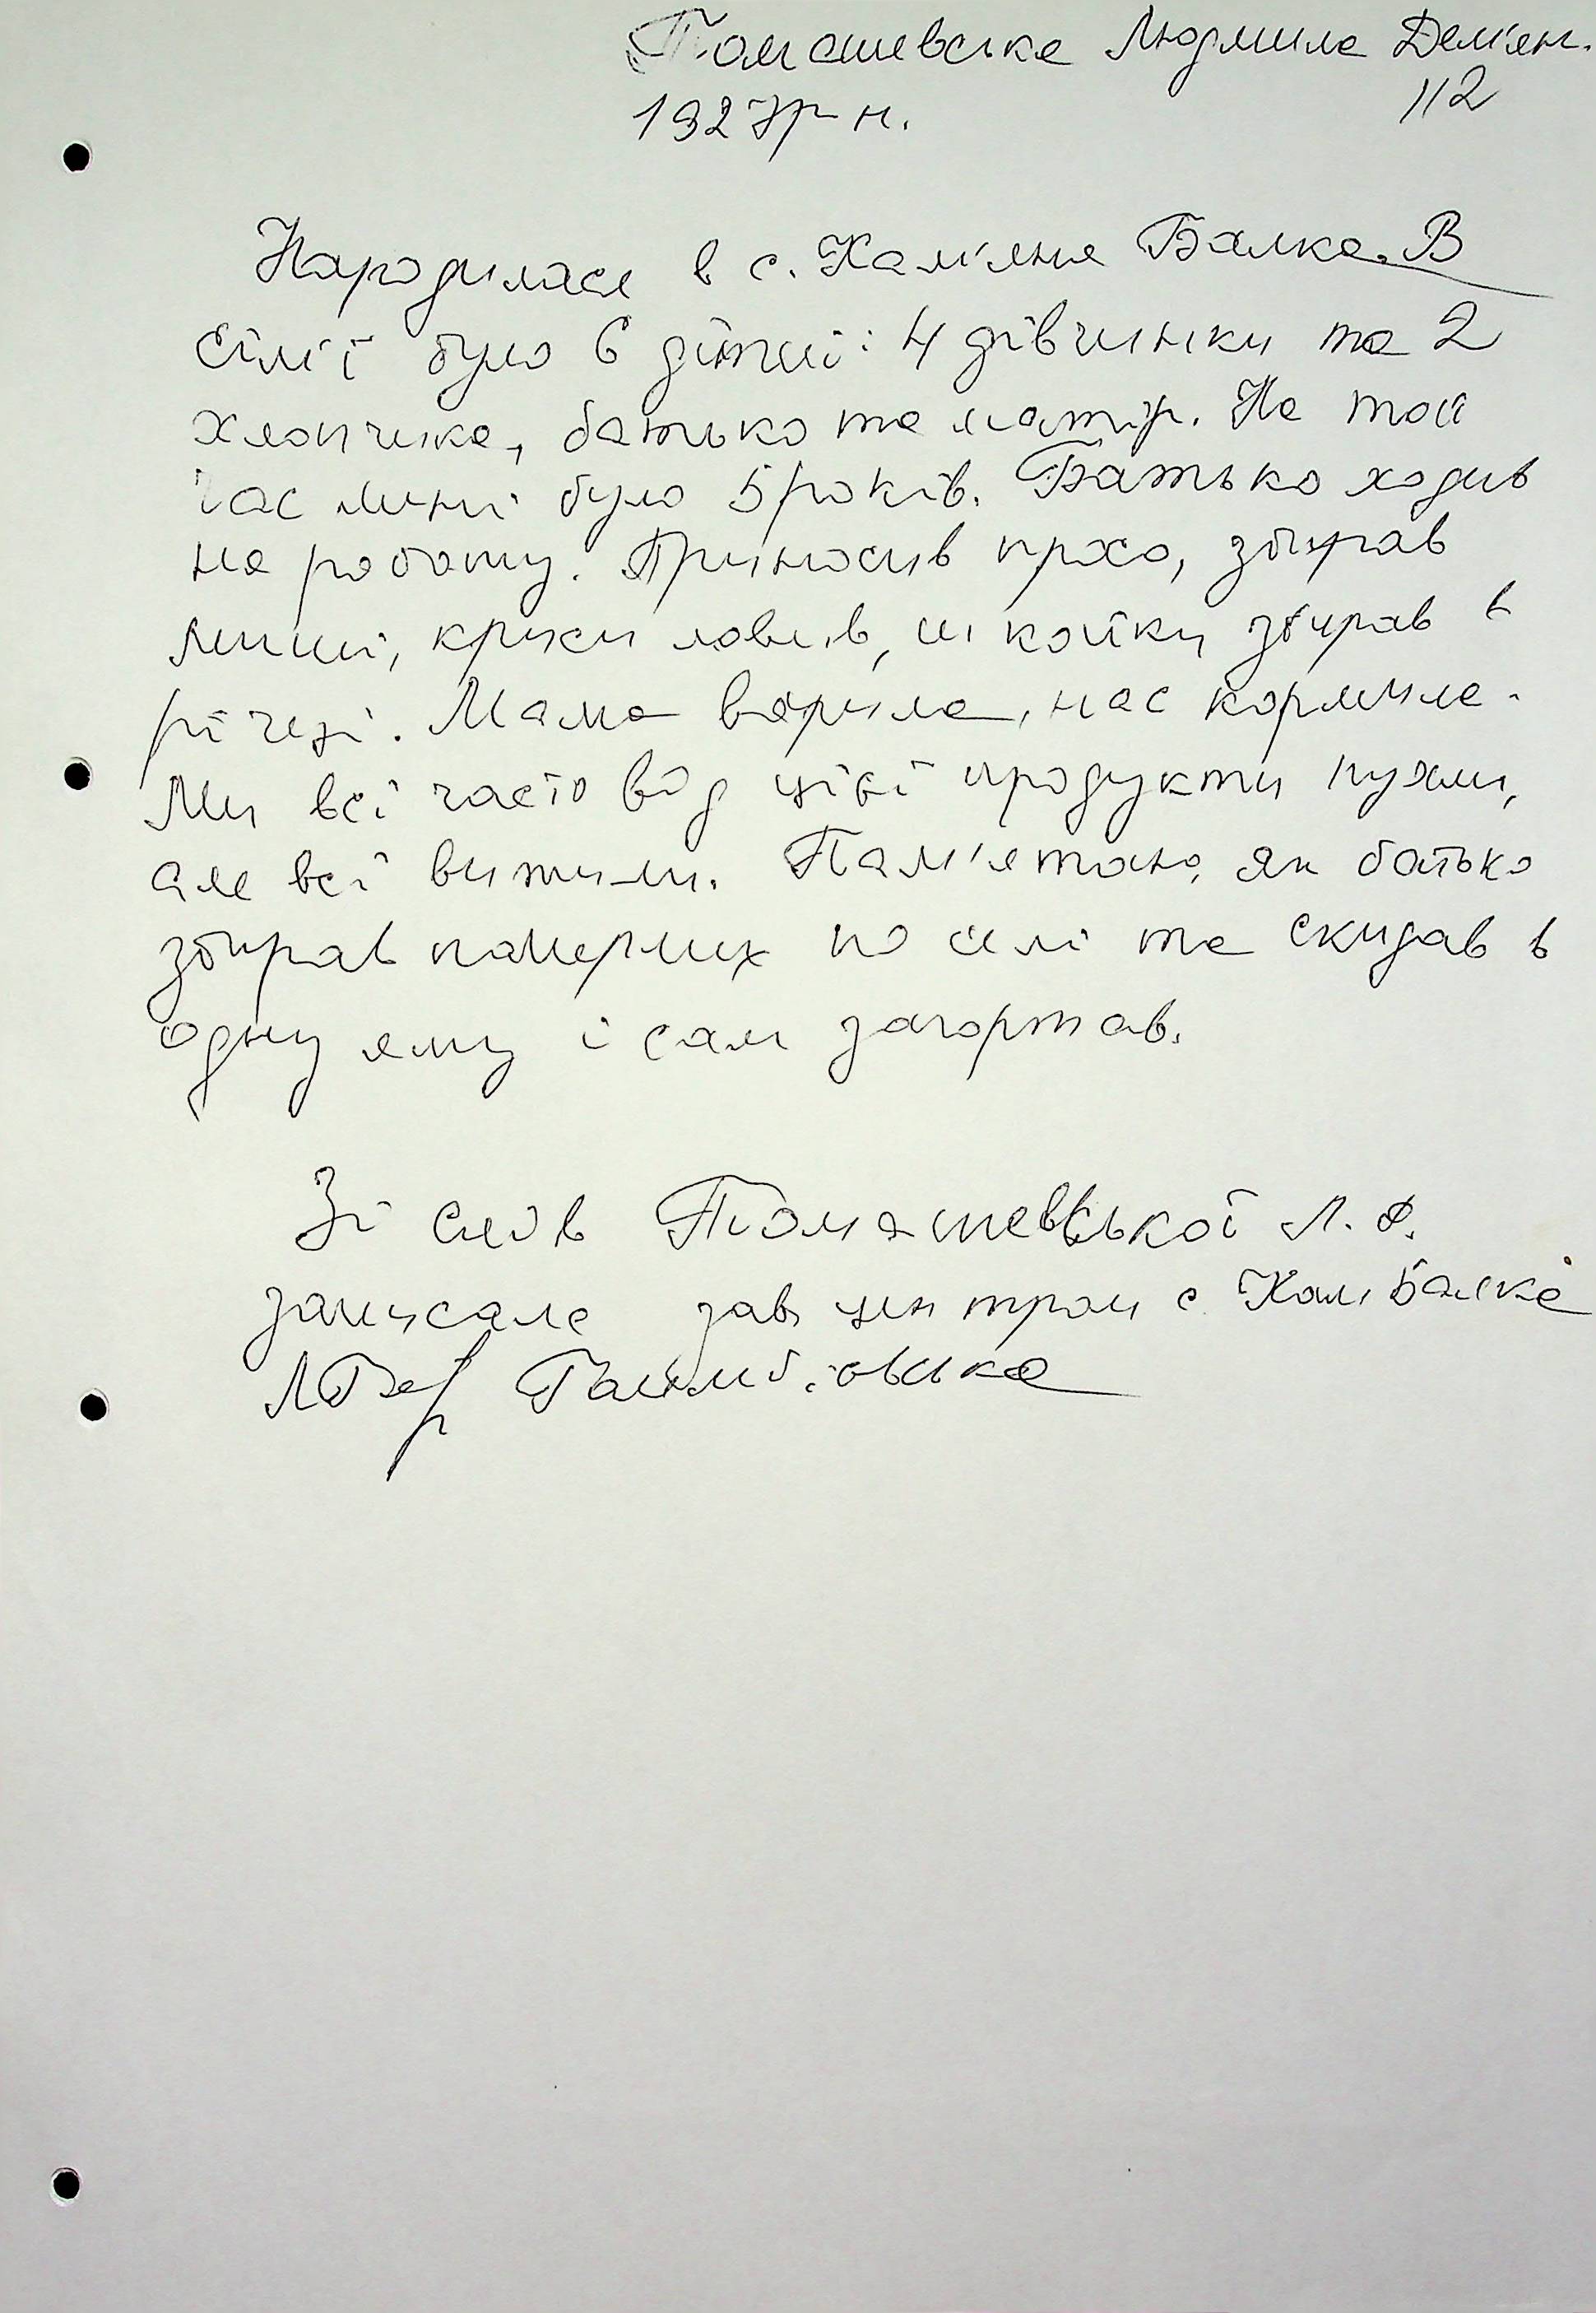 Томашевська Людмила Демян.
112
1927 р н.
Народилася в с. Кам'яна Балка. В
сім'ї було 6 дітей: 4 дівчинки та 2
хлопчика, батько та матір. На той
час мені було 5 років. Батько ходив
на роботу. Приносив просо, збирав
миші, криси ловив, шкойки збирав в
річезі. Мама варила, нас кормила.
Ми всі часто від цієї продукти пухли,
але всі вижили. Пам'ятаю, як батько
збирав памерлих по селі та скидав в
одну яму і сам загортав.
Зі слів Томашевської Л. Д.
записала зав центром с Кам Балка